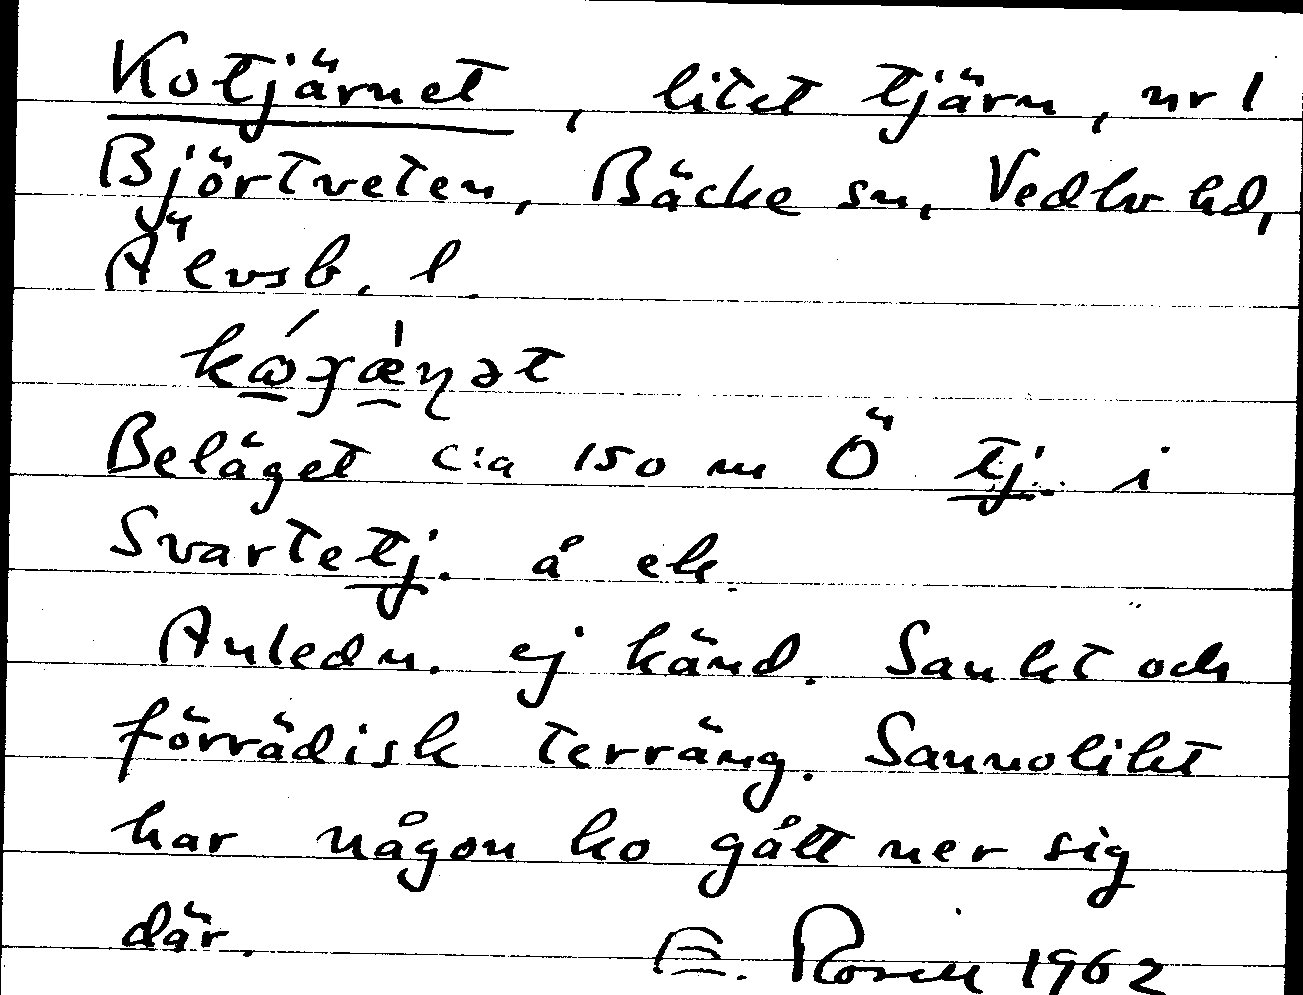 Kotjärnet, litet tjärn, nr 1
Björtveten, Bäcke sn, Vedbo hd,
Älvsb. l.
Beläget c:a 150 m Ö tj. i
Svartetj. å ek.
Anledn. ej känd. Sankt och
förrädisk terräng. Sannolikt
har någon ko gått ner sig
där. E. Rosell 1962